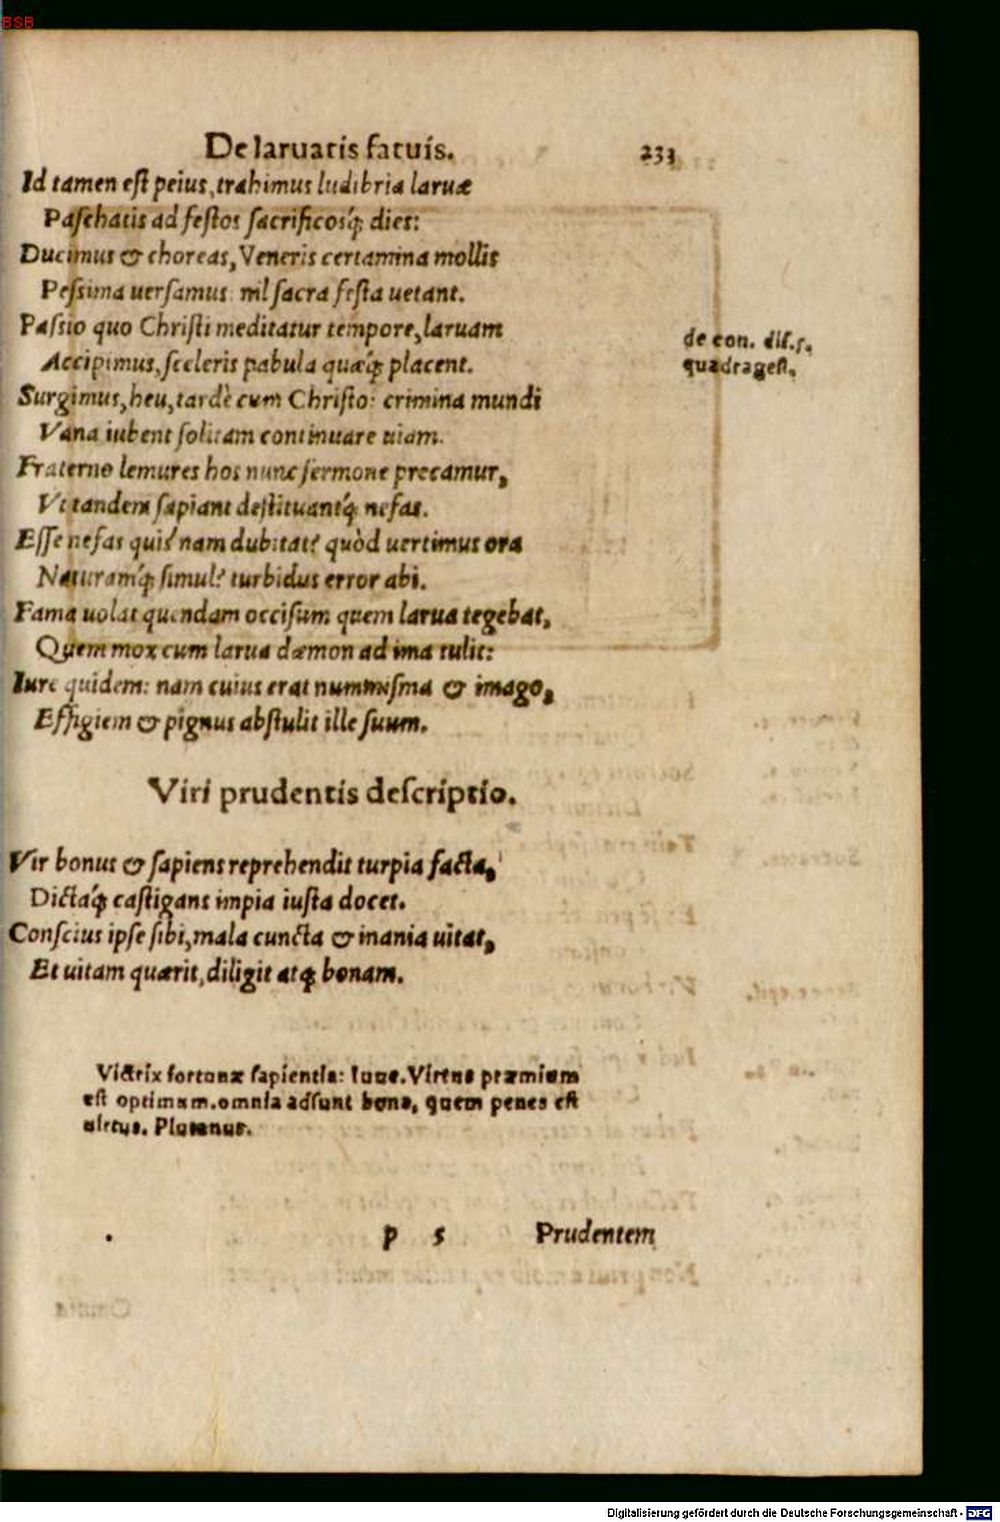 BSB
De laruatis fatuis. 233
Id tamen est peius, trahimus ludibria laruæ
Paschatis ad festos sacrificosq́; dies:
Ducimus & choreas, Veneris certamina mollis
Pessima uersamus: nil sacra festa uetant.
Passio quo Christi meditatur tempore, laruam
Accipimus, sceleris pabula quæq́; placent.
de con. dis. 5.
quadragest.
Surgimus, heu, tardè cum Christo: crimina mundi
Vana iubent solitam continuare uiam.
Fraterno lemures hos nunc sermone precamur,
Vt tandem sapiant destituantq́; nefas.
Esse nefas quis nam dubitat? quòd uertimus ora
Naturamq́; simul? turbidus error abi.
Fama uolat quendam occisum quem larua tegebat,
Quem mox cum larua dæmon ad ima tulit:
Iure quidem: nam cuius erat nummisma & imago,
Effigiem & pignus abstulit ille suum.
Viri prudentis descriptio.
Vir bonus & sapiens reprehendit turpia facta,
Dictaq́; castigans impia iusta docet.
Conscius ipse sibi, mala cuncta & inania uitat,
Et uitam quærit, diligit atq; bonam.
Victrix fortunæ sapientia: Iuue. Virtus præmium
est optimum. omnia adsunt bona, quem penes est
uirtus. Plutanus.
p 5 Prudentem
Digitalisierung gefördert durch die Deutsche Forschungsgemeinschaft - DFG